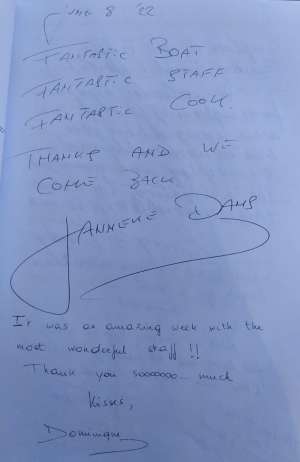 June 8 '22
FANTASTIC BOAT
FANTASTIC STAFF
FANTASTIC COOK.
THANKS AND WE
COME BACK
JANNEKE DAMS
It was an amazing week with the
most wonderful staff !!
Thank you sooooooo... much
Kisses,
Dominique